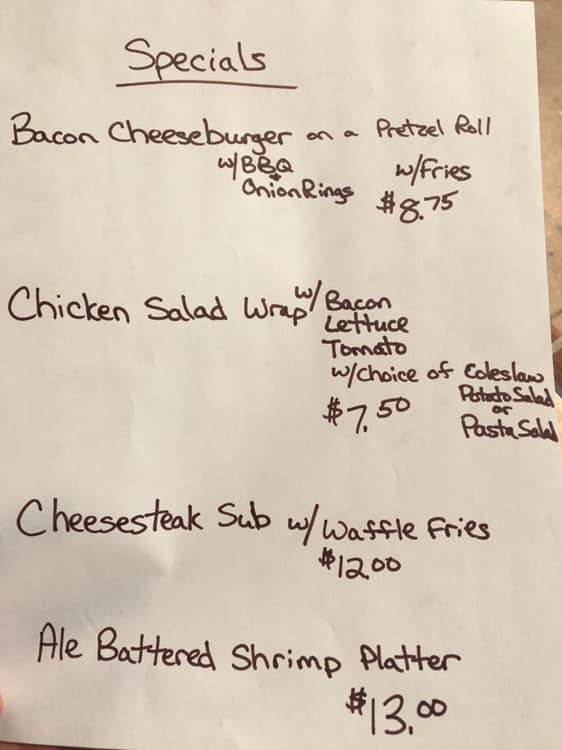 Specials
Bacon Cheeseburger on a Pretzel Roll
w/BBQ w/Fries
+ Onion Rings $8.75
Chicken Salad Wrap w/ Bacon
Lettuce
Tomato
w/choice of Coleslaw
Potato Salad
$7.50 or
Pasta Salad
Cheesesteak Sub w/ Waffle Fries
$12.00
Ale Battered Shrimp Platter
$13.00